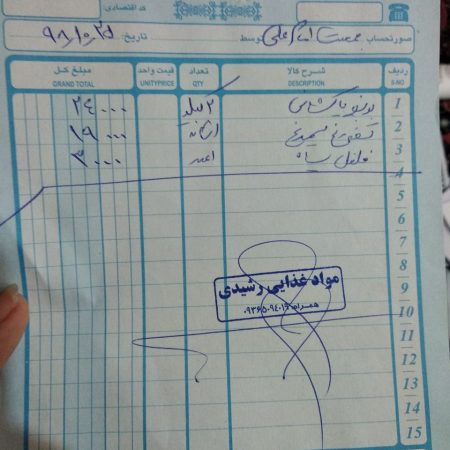 کد اقتصادی
صورتحساب جمعیت امام علی توسط تاریخ: ۹۸/۱۰/۲۵
ردیف شرح کالا تعداد قیمت واحد مبلغ کل
S-NO DESCRIPTION QTY UNITYPRICE GRAND TOTAL
1 ۲ کیلو ۲۴۰۰۰
2 ۱ شانه ۱۹۰۰۰
3 فلفل سیاه ۱ عدد ۳۰۰۰
4
5
6
7
8
مواد غذایی رشیدی
9
همراه:
10
11
12
13
14
15